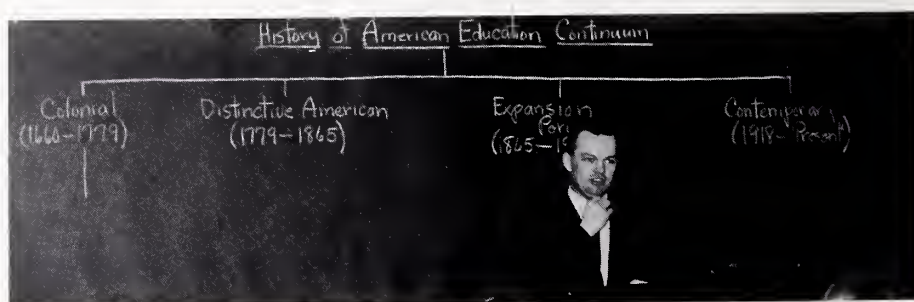 History of American Education Continuum
Colonial
(1660-1779)
Distinctive American
(1779-1865)
Expansion
(1865-19
Contemporary
(1918-Present)